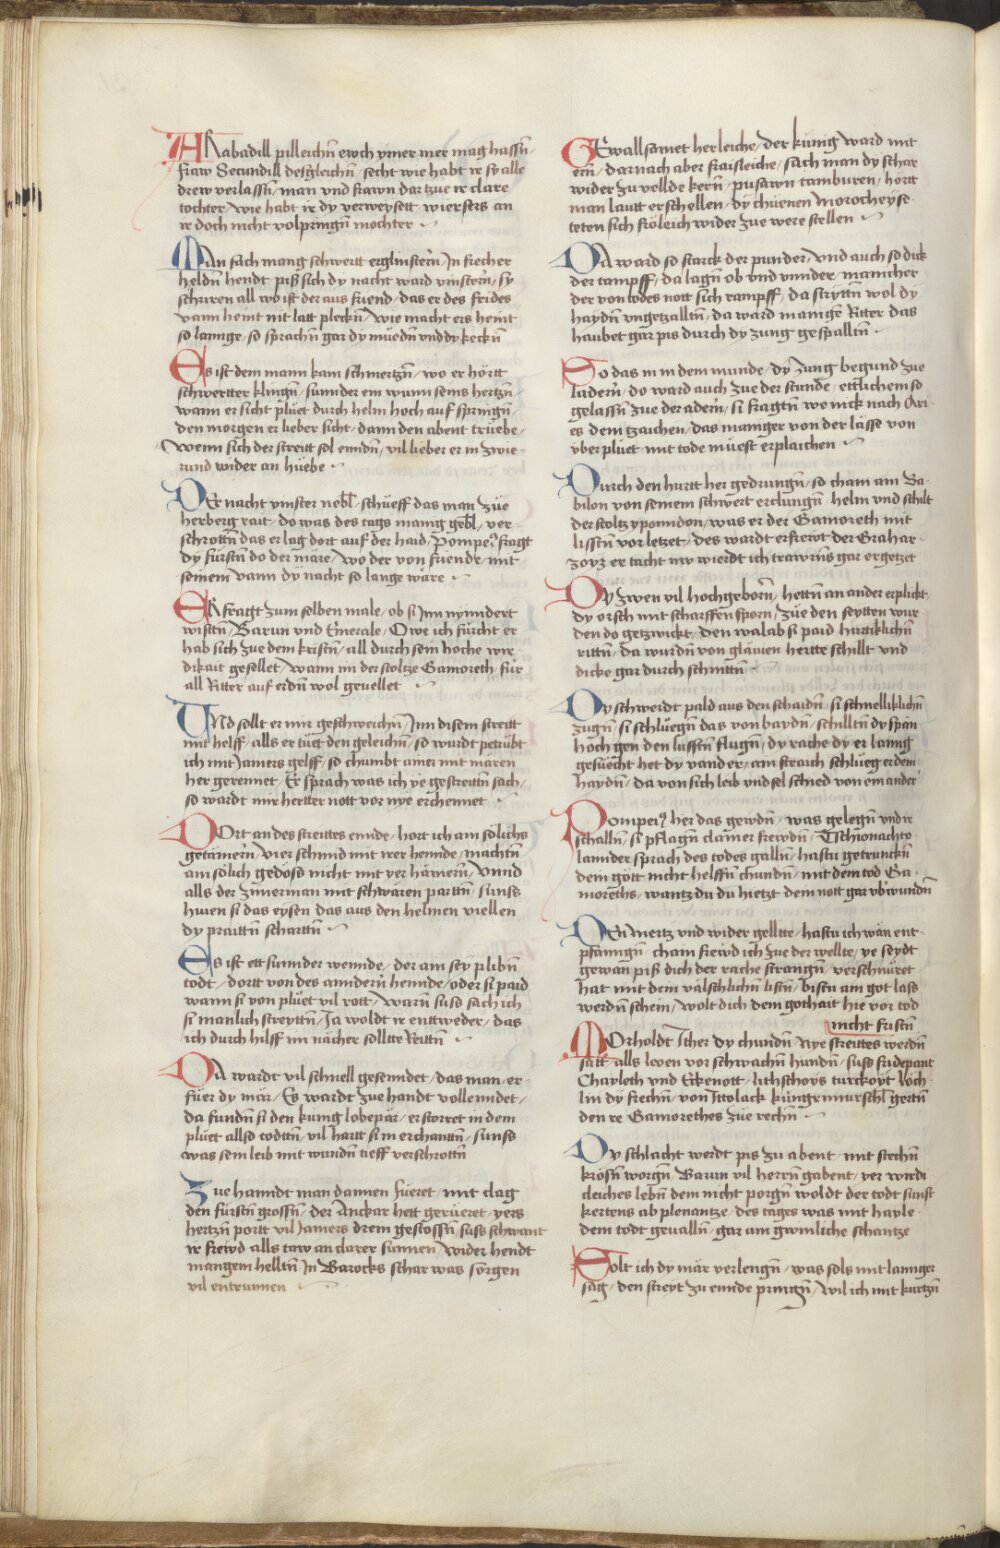 ARabadill pilleichñ ewch ymer mer mag hassñ /
fraw Secundill desgleichñ / secht wie habt ir sy alle
drew verlassñ / man vnd frawn dar zue ir clare
tochter / wie habt ir dy verweysett / wie ersters an
ir doch nicht volpringñ mochter
MAn sach mang schwertt erglinstern̄ / In frecher
heldñ hendt / piß sich dy nacht ward vinstern̄ / sy
schriren all wo ist der aus friend / das er des frides
vann heint nit latt pleckñ / wie macht ers heint
so lannge / so sprachñ gar dy müedñ vnd dy keckñ
Es ist dem mann kain schmertzñ / wo er hörtt
schwertter klingñ / sunnder ein wunn seins hertzñ /
wann er sicht plüet durch helm hoch auf springñ /
den morgen er lieber sicht / dann den abent trüebe /
Wenn sich der streitt sol enndñ / vil lieber er in zwie
rund wider an hüebe
DEr nacht vinster nebl / schüeff das man züe
herberg rait / do was des tags manig gebl / ver
schrottñ das er lag dort auf der haid / Pompeꝰ fragt
dy fürstñ do der märe / wo der von friende / mit
seinem vann dy nacht so lange wäre
ER fragt zum selben male / ob si Inn nynndert
wistñ / Barun vnd Emerale / O we ich fürcht er
hab sich zue dem kristñ / all durch sein hoche wir
dikait gesellet / wann im der stoltze Gamoreth für
all Ritter auf erdñ wol geuellet
VNd sollt er mir geschweichñ / Inn disem streitt
mit helff / alls er tüet den geleichñ / so wurdt petrübt
ich mit Jamers gelff / so chumbt amer mit mären
her gerennet / Er sprach was ich ye gestreittñ sach /
so wardt mir hertter nott vor nye erchennet
DOrt an des streittes ennde / hort ich am sölichs
getämern̄ / vier schmid mit irer hennde / machtñ
am sölich gedöss nicht mit yer hämern̄ / vnnd
alls der zimerman mit schwären parttñ / sunss
hiwen si das eysen das aus den helmen viellen
dy praittñ scharttñ
Es ist ett sunnder wennde / der ain sey plibñ
todt / dortt von des anndern̄ hennde / oder si paid
wann si von plüet vil rott / warñ suss sach ich
si manlich streyttñ / Ja woldt ir enttweder / das
ich durch hilff im nächer solltte Reittñ
DA wardt vil schnell gesenndet / das man er
füer dy mär / Es wardt zue handt vollenndet /
da fundñ si den kunig lobepär / er storret in dem
plüet allso todttñ / vil hartt si in erchanttñ / sunss
was sein leib mit wundñ tieff verschrottñ
Zue hanndt man dannen füeret / mit clag
den fürstñ grossñ / der Anckar hett gerüeret / yers
hertzñ portt vil Jamers drein gestossñ / suss schwant
ir frewd alls taw an clarer sunnen / wider hendt
mangem helltñ In Barocks schar was sorgen
vil entrunnen
GEwallsamet herleiche / der künig ward mit
ern̄ / darnach aber fraisleiche / sach man dy schar
wider zu vellde kern̄ / pusawn tamburen / hortt
man lautt erschellen / dy chüenen Morocheyse
teten sich fröleich wider zue were stellen
DA ward so starck der punder / vnd auch so dick
der tampff / da lagñ ob vnd vnnder / manicher
der von todes nott sich rampff / da strittñ wol dy
haydñ vngetzalltñ / da ward manigñ Ritter das
haubet gar pis durch dy zung gespalltñ
So das in in dem munde / dy zung begund zue
ladern̄ / do ward auch zue der stunde / ettlichem so
gelassñ zue der adern̄ / si fragtñ wenick nach Ari
es dem tzaichen / das maniger von der lässe von
vber plüet mit tode müest erplaichen
Durch den hurtt her gedrungñ / so cham am Ba
bilon von seinem schwert erclungñ / helm vnd schilt
der stoltz yponidon / was er der Gamoreth mit
listñ vor letzet / des wardt erfrewt der Grahar
zoys er tacht nw wierdt ich trawrñs gar ergetzet
Dy zwen vil hochgeborn̄ / hettñ an ander erplickt
dy orsch mit scharffen sporn̄ / züe den seytten wur
den do getzwickt / den walab si paid hurttiklichñ
rittñ / da wurdñ von glänen hertte schillt vnd
dicke gar durch schnittñ
Dy schwerdt pald aus den schaidñ / si schnelliklichñ
zugñ / si schluegñ das von baydñ / schilltñ dy span
hoch gen den lufftñ flugñ / dy rache dy er lanng
gesuecht het dy vander / ain straich schlüeg er dem
haydñ / da von sich leib vnd sel schied von ein ander
Pompeiꝰ her das gewdñ / was gelegñ vnd ir
schallñ / si pflagñ clainer frewdñ / Tschionachto
lannder sprach des todes gallñ / hastu getrunckñ
dem gött nicht helffñ chundñ / mit dem tod Ga
moreths / wantz du du hietzt dem nott gar vbꝰwundñ
DEn mertz vnd wider gelltte / hastu ich wän ent
pfanngñ / cham frewd ich zue der wellte / ye seydt
gewan piß dich der rache strangñ / verschnüret
hat mit dem välschlichñ listñ / bistu am got lass
werdñ schein / wolt dich dem gothait hie vor tod
nicht fristñ
MOrholdt Ither dy chundñ / Nye streittes werdñ
satt / alls leoen vor schwachñ hundñ / suss fridepant
Chayleth vnd Eckenott / lithschoys turckoyt löch
lin dy frechñ / von Ittolack küngrimurschl gertñ
den re Gamorethes züe rechñ
Dy schlacht werdt pis zu abent / mit stechñ
krosñ worgñ / Barun vil herrñ gabent / yer wirdi
cleiches lebñ dem nicht porgñ / woldt der todt sunst
kertens ab plenantze / des tages was mit hayle
dem todt geuallñ / gar am gwinliche schantze
Solt ich dy mär verlengñ / was sols mit lannger
sag / den streyt zu ennde pringñ / wil ich mit kurtzñ